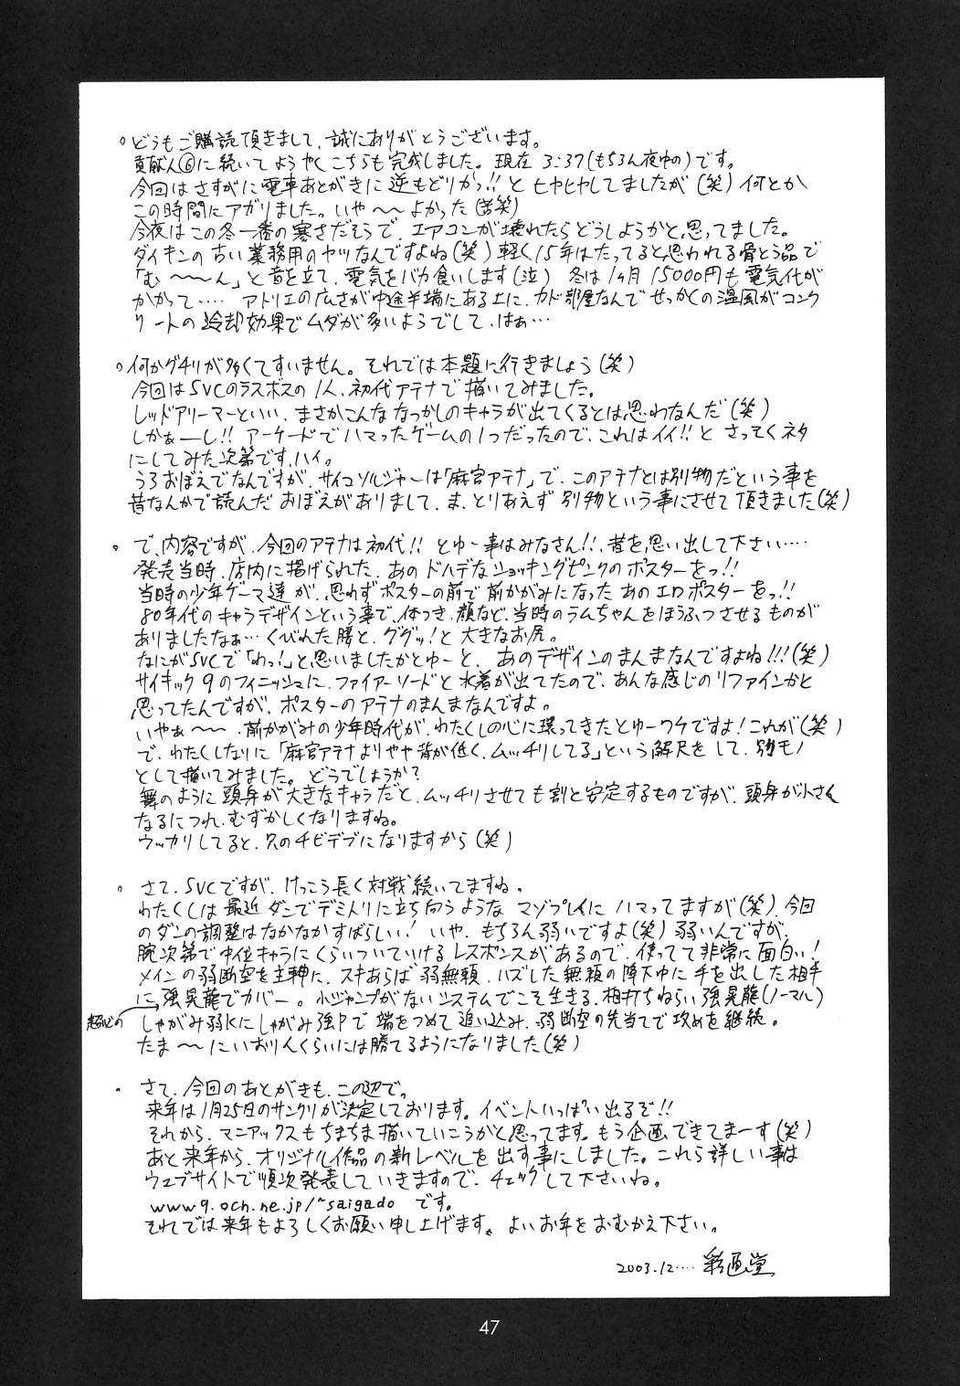 。どうもご購読頂きまして、誠にありがとうございます。
貢献人⑥に続いてようやくこちらも完成しました。現在 3:37(もちろん夜中の)です。
今回はさすがに電車あとがきに逆もどりか!! と ヒヤヒヤしてましたが(笑) 何とか
この時間にアガリました。いや〜〜よかった(苦笑)
今夜はこの冬一番の寒さだそうで、エアコンが壊れたらどうしようかと思ってました。
ダイキンの古い業務用のヤツなんですよね(笑) 軽く15年はたってると思われる骨とう品で
「む〜〜ん」と音を立て、電気をバカ食いします(泣) 冬は1ヶ月 15000円も電気代が
かかって‥‥ アトリエの広さが中途半端にある上に、カド部屋なんでせっかくの温風がコンク
リートの冷却効果でムダが多いようでして、はぁ…
。何かグチりが多くてすいません。それでは本題に行きましょう(笑)
今回はSVCのラスボスの1人、初代アテナで描いてみました。
レッドアリーマーといい、まさかこんななつかしのキャラが出てくるとは思わなんだ(笑)
しかぁーし!! アーケードでハマったゲームの1つだったので、これはイイ!! と さっそくネタ
にしてみた次第です、ハイ。
うろおぼえでなんですが、サイコソルジャーは「麻宮アテナ」で、このアテナとは別物だという事を
昔なんかで読んだおぼえがありまして、ま、とりあえず別物という事にさせて頂きました(笑)
。で、内容ですが、今回のアテナは初代!! とゆー事はみなさん!!、昔を思い出して下さい‥‥
発売当時、店内に掲げられた、あのドハデなショッキングピンクのポスターをっ!!
当時の少年ゲーマ達が、思わずポスターの前で前かがみになったあのエロポスターをっ!!
80年代のキャラデザインという事で、体つき、顔など、当時のラムちゃんをほうふつさせるものが
ありましたなぁ… くびれた腰と、ググッ!と大きなお尻。
なにがSVCで「わっ!」と思いましたかとゆーと、あのデザインのまんまなんですよね!!!(笑)
サイキック9のフィニッシュに、ファイアーソードと水着が出てたので、あんな感じのリファインかと
思ってたんですが、ポスターのアテナのまんまなんですよ。
いやぁ〜〜、前かがみの少年時代が、わたくしの心に還ってきたとゆーワケですよ! これが(笑)
で、わたくしなりに「麻宮アテナよりやや背が低く、ムッチリしてる」という解尺をして、別モノ
として描いてみました。どうでしょうか?
舞のように頭身が大きなキャラだと、ムッチリさせても割と安定するものですが、頭身が小さく
なるにつれ、むずかしくなりますね。
ウッカリしてると、只のチビデブになりますから(笑)
。さて、SVCですが、けっこう長く対戦続いてますね。
わたくしは最近ダンでデミトリに立ち向うような マゾプレイに ハマってますが(笑) 今回
のダンの調整はなかなかすばらしい! いや、もちろん弱いですよ(笑) 弱いんですが、
腕次第で中位キャラにくらいついていけるレスポンスがあるので、使ってて非常に面白い!
メインの弱断空を主軸に、スキあらば弱無頼、ハズした無頼の降下中に手を出した相手
に、強晃龍でカバー。小ジャンプがないシステムでこそ生きる、相打ちねらい強晃龍(ノーマル)
しゃがみ弱Kにしゃがみ強Pで端をつめて追い込み、弱断空の先当てで攻めを継続。
たま〜〜にいおりんくらいには勝てるようになりました(笑)
・さて、今回のあとがきも、この辺で。
来年は1月25日のサンクリが決定しております。イベントいっぱい出るぞ!!
それから、マニアックスもちまちま描いていこうかと思ってます。もう企画できてまーす(笑)
あと来年から、オリジナル作品の新レーベルを出す事にしました。これら詳しい事は
ウェブサイトで順次発表していきますので、チェックして下さいね。
www9.ocn.ne.jp/~saigado です。
それでは来年もよろしくお願い申し上げます。よいお年をおむかえ下さい。
2003.12‥‥ 彩画堂
47